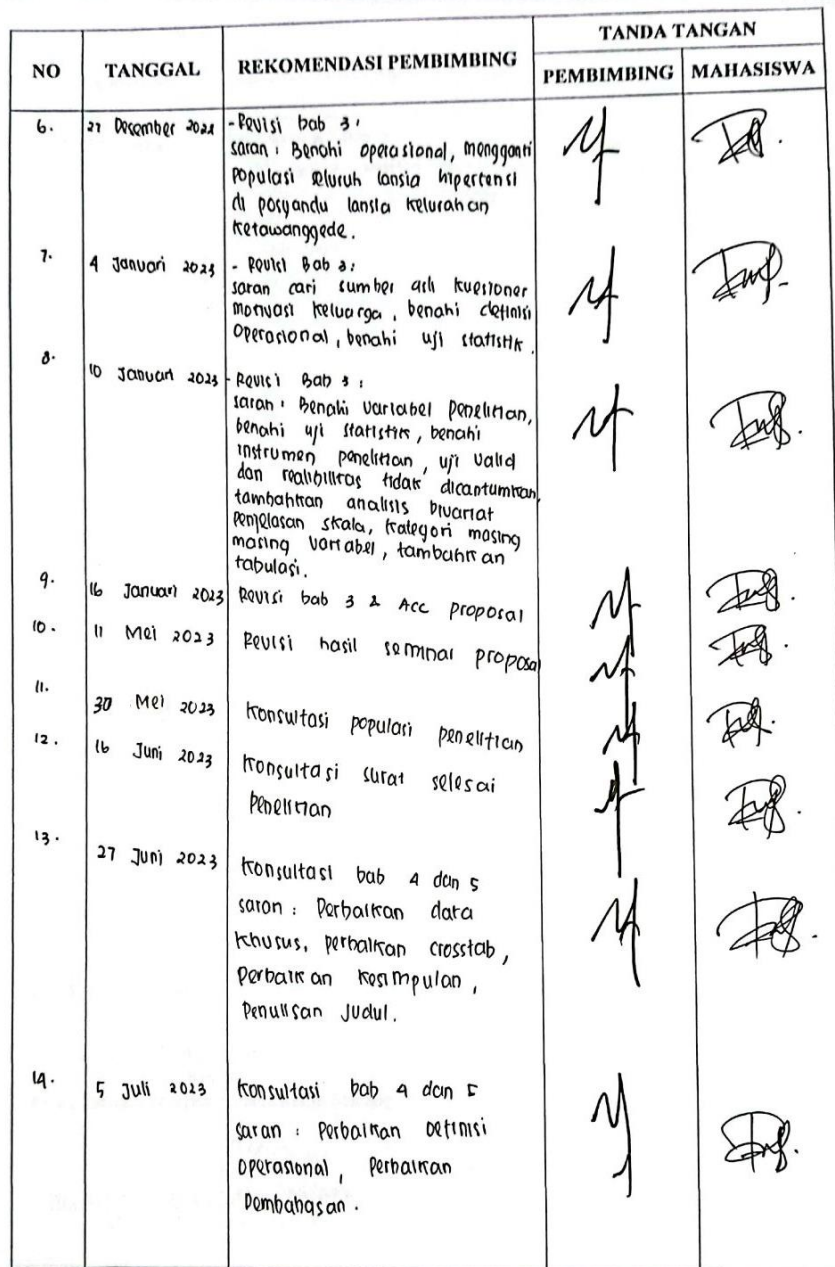 NO TANGGAL REKOMENDASI PEMBIMBING TANDA TANGAN
PEMBIMBING MAHASISWA
6. 27 Desember 2022 - Revisi bab 3 :
saran : Benahi operasional, mengganti
populasi seluruh lansia hipertensi
di posyandu lansia kelurahan
ketawanggede.
7. 4 Januari 2023 - Revisi Bab 3:
saran cari sumber asli kuesioner
motivasi keluarga, benahi definisi
operasional, benahi uji statistik.
8. 10 Januari 2023 - Revisi Bab 3 :
saran : Benahi variabel penelitian,
benahi uji statistik, benahi
instrumen penelitian, uji valid
dan realibilitas tidak dicantumkan,
tambahkan analisis bivariat
penjelasan skala, kategori masing
masing variabel, tambahkan
tabulasi.
9. 16 Januari 2023 Revisi bab 3 & Acc proposal
10. 11 Mei 2023 Revisi hasil seminar proposal
11. 30 Mei 2023 Konsultasi populasi penelitian
12. 16 Juni 2023 Konsultasi surat selesai
Penelitian
13. 27 Juni 2023 Konsultasi bab 4 dan 5
saran : Perbaikan data
khusus, perbaikan crosstab,
Perbaikan kesimpulan,
Penulisan Judul.
14. 5 Juli 2023 Konsultasi bab 4 dan 5
saran : Perbaikan Definisi
operasional, Perbaikan
Pembahasan.